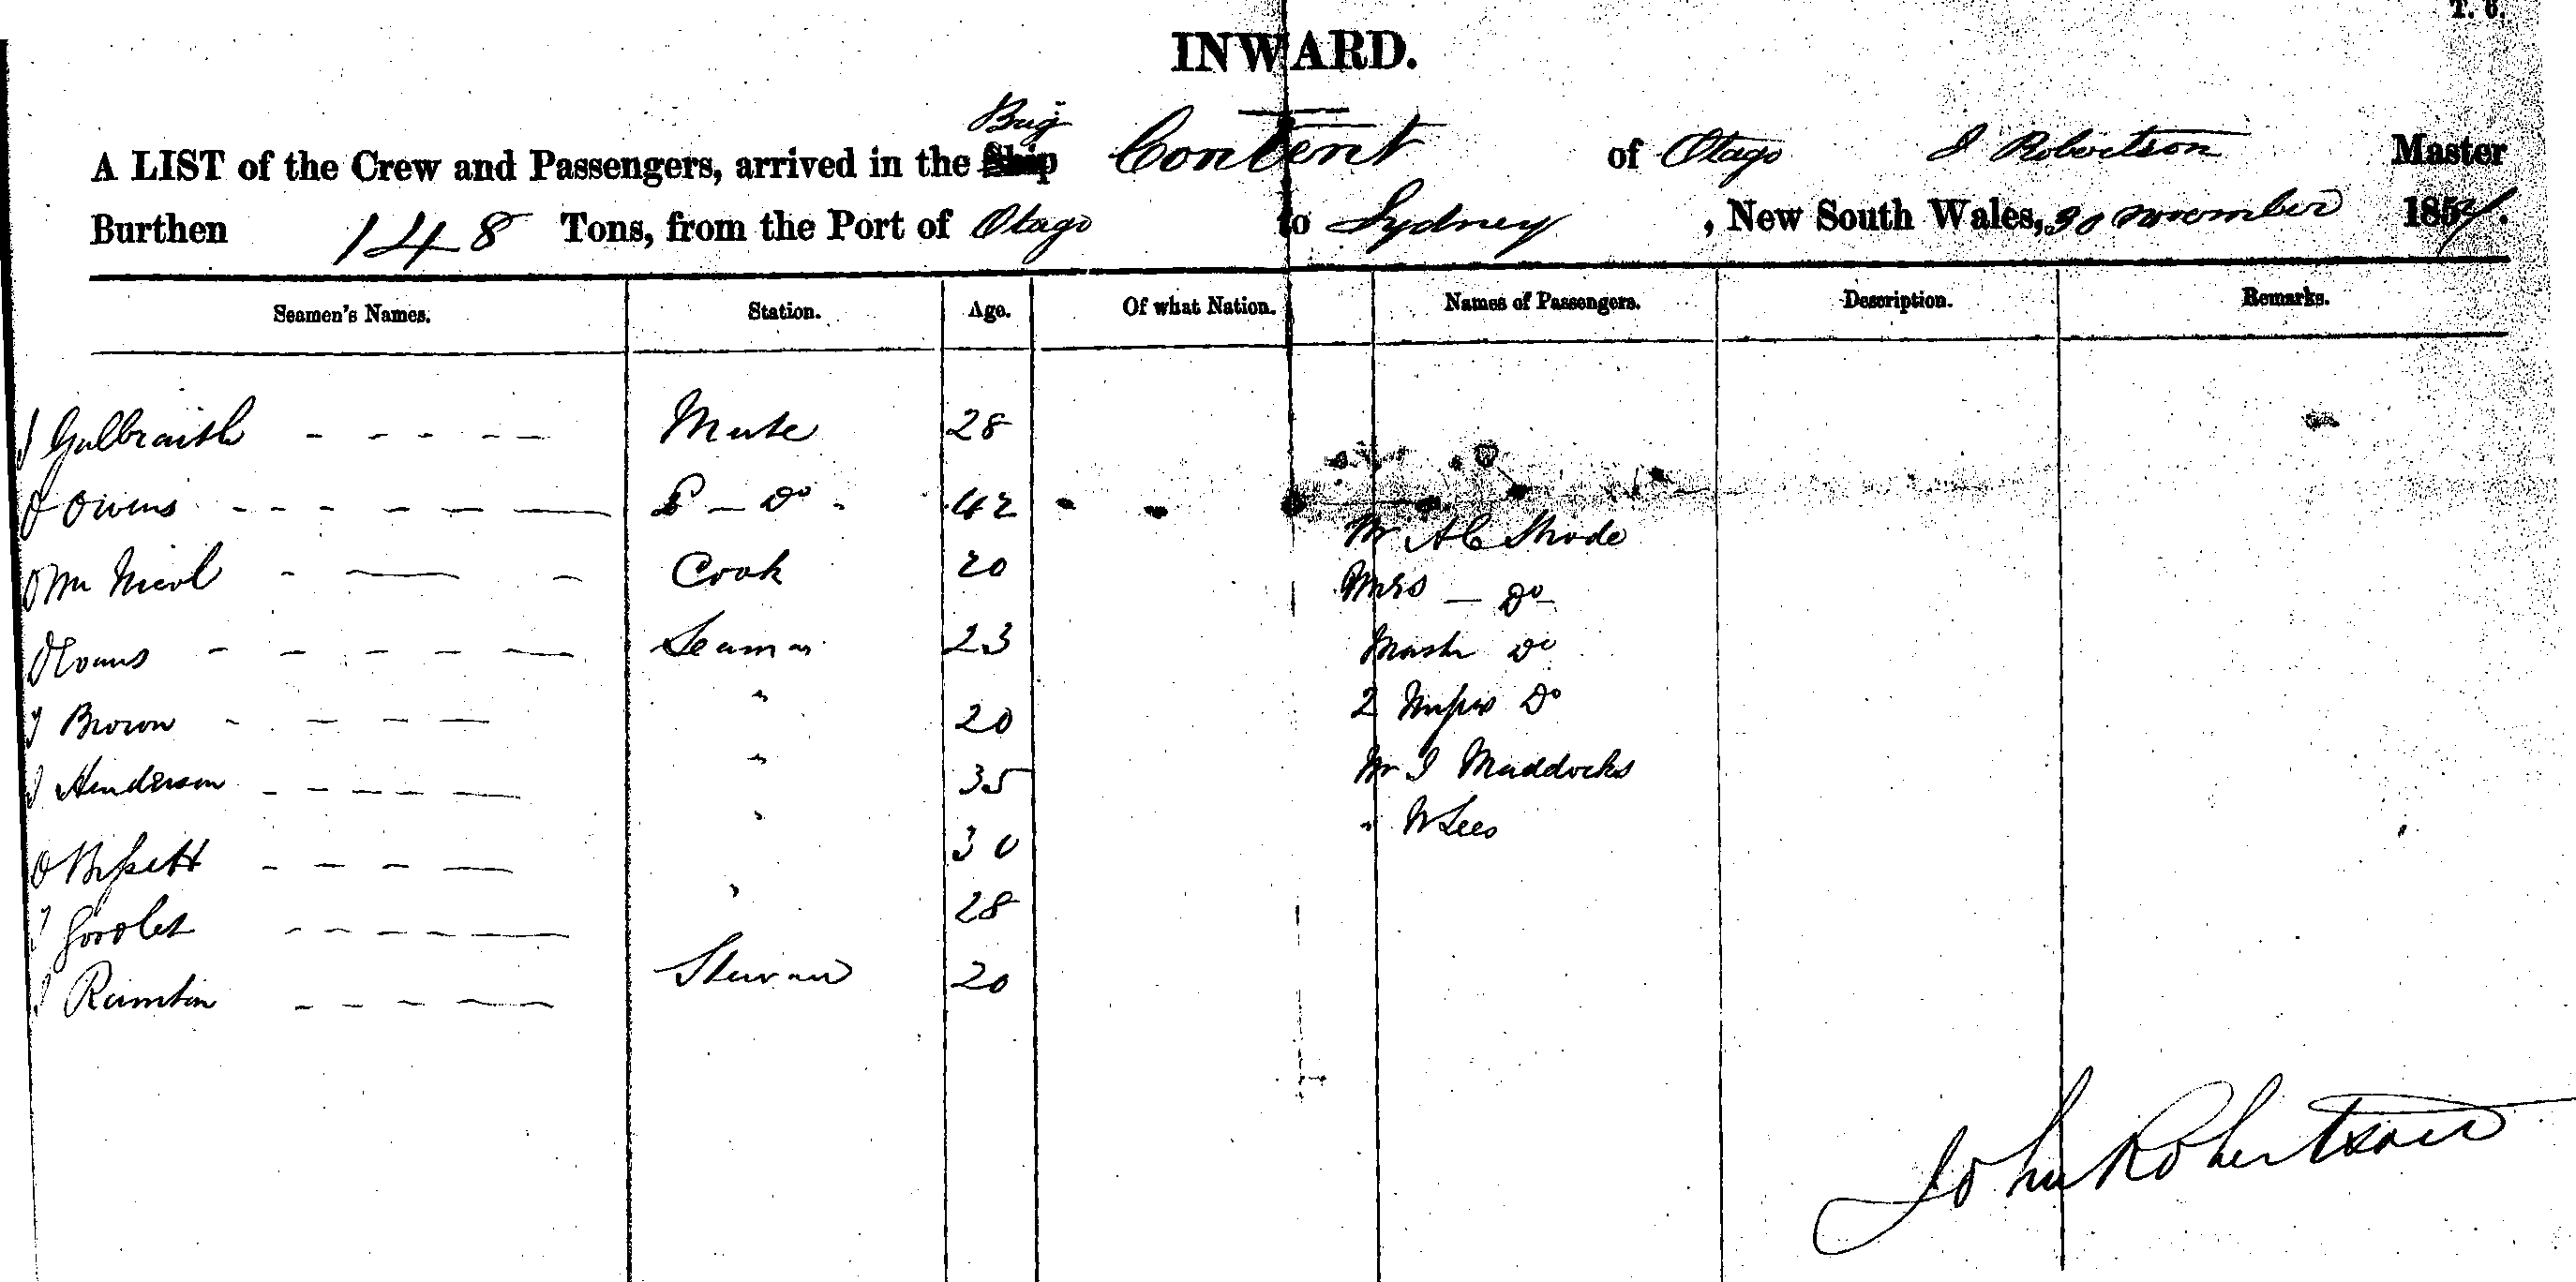 T. 6.
INWARD.
Brig
A LIST of the Crew and Passengers, arrived in the Ship Content of Otago J Robertson Master
Burthen 148 Tons, from the Port of Otago to Sydney, New South Wales, 30 November 185
Seamen's Names. Station. Age. Of what Nation. Names of Passengers. Description. Remarks.
J Galbraith - - - - - Mate 28
Owens - - - - - - Do - 42
Mr A C Strode
Nicol - - - Cook 20
Mrs - Do -
Evans - - - - - Seaman 23
Mastr Do
Brown - - - - " 20
2 Misses Do
J Henderson - - - - - " 35
Mr J Maddocks
Bissett - - - - " 30
" W Lees
Goodlet - - - - - - " 28
J - - - - - Steward 20
John Robertson